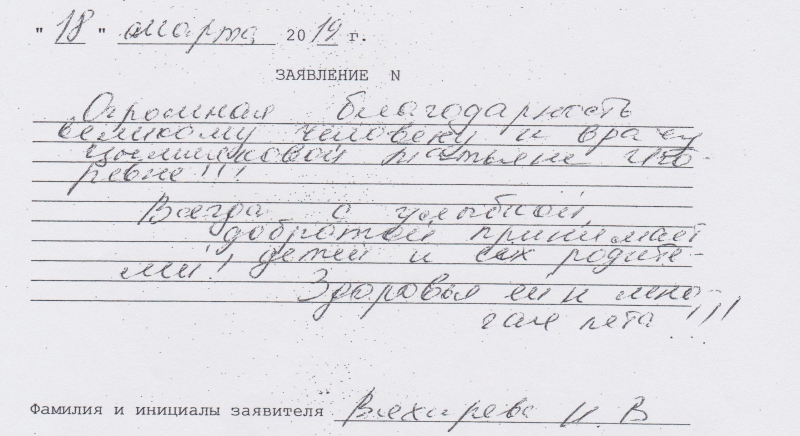 " 18 " марта 2019 г.
ЗАЯВЛЕНИЕ N
Огромная благодарность
великому человеку и врачу
Татьяне Иго-
ревне!!!
Всегда с улыбкой,
добротой принимает
детей и их родите-
ли!
Здоровья ей и мно-
гая лета!!!
Фамилия и инициалы заявителя И. В